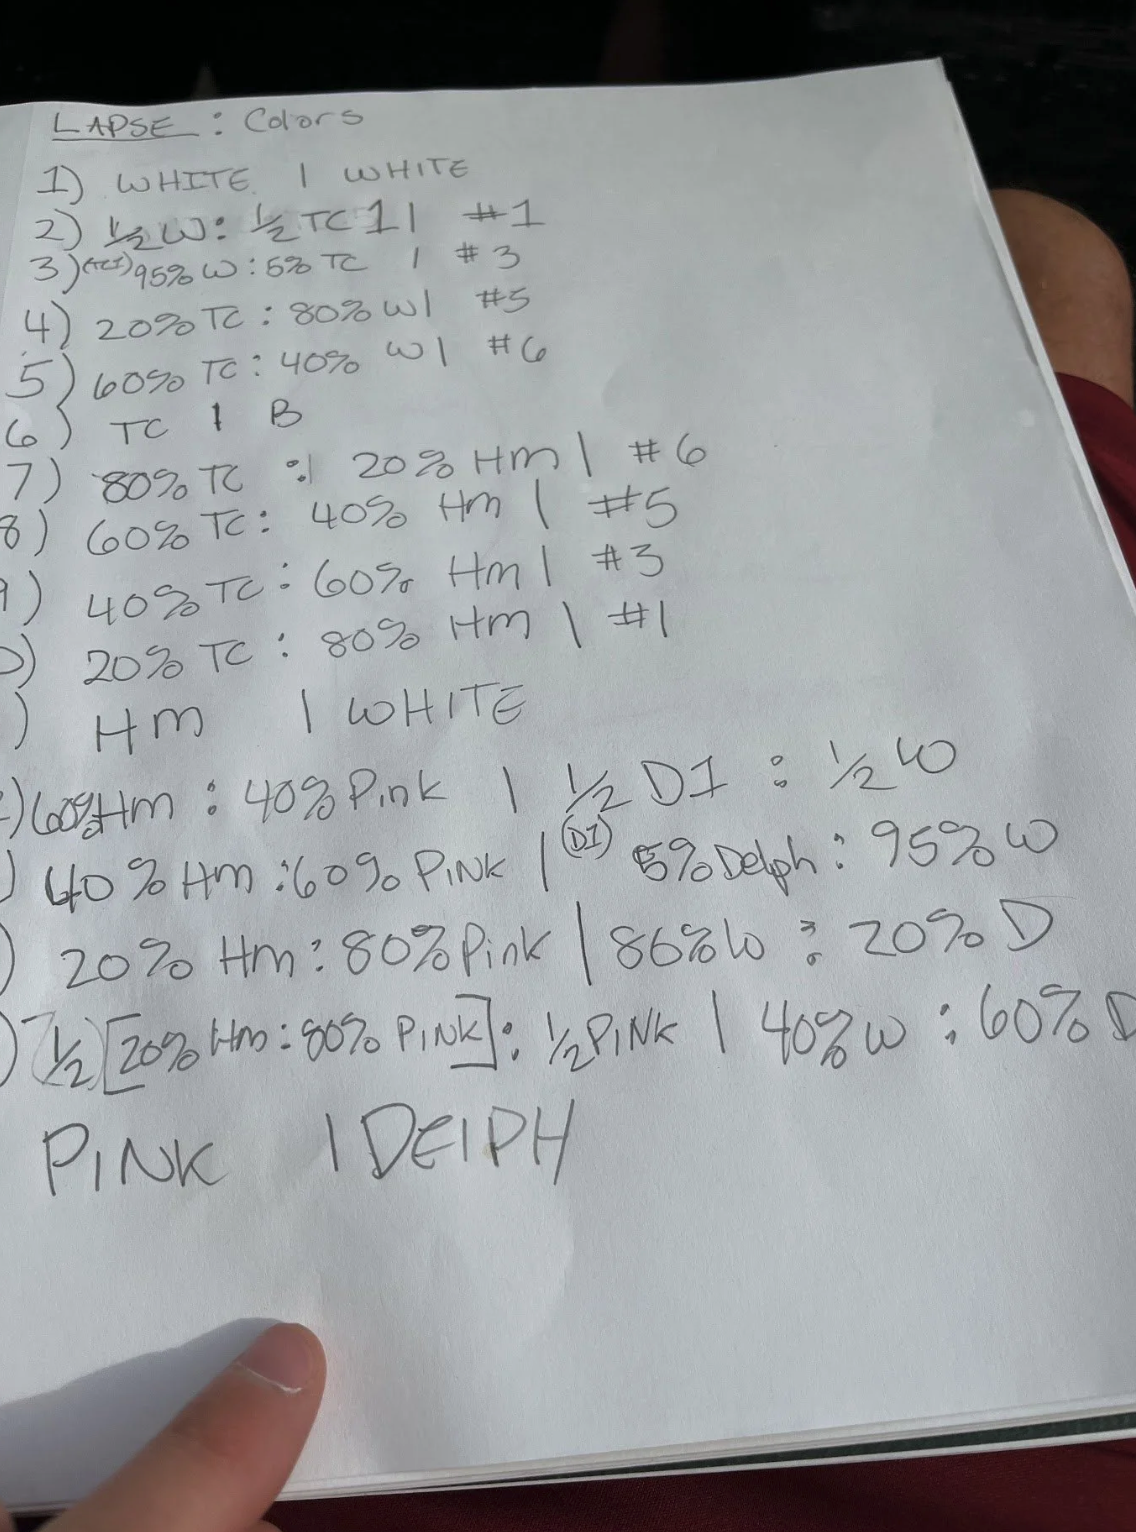 LAPSE : Colors
1) WHITE | WHITE
2) ½W : ½ TC1 | #1
3) (TC1) 95% W : 5% TC | #3
4) 20% TC : 80% W | #5
5) 60% TC : 40% W | #6
6) TC | B
7) 80% TC : | 20% Hm | #6
8) 60% TC : 40% Hm | #5
9) 40% TC : 60% Hm | #3
) 20% TC : 80% Hm | #1
) Hm | WHITE
) 60% Hm : 40% Pink | ½ D1 : ½ W
) 40% Hm : 60% PiNK | (D1) 5% Delph : 95% W
) 20% Hm : 80% Pink | 80% W : 20% D
) ½ [20% Hm : 80% PiNK] : ½ PiNK | 40% W : 60% D
PiNK | DElPH